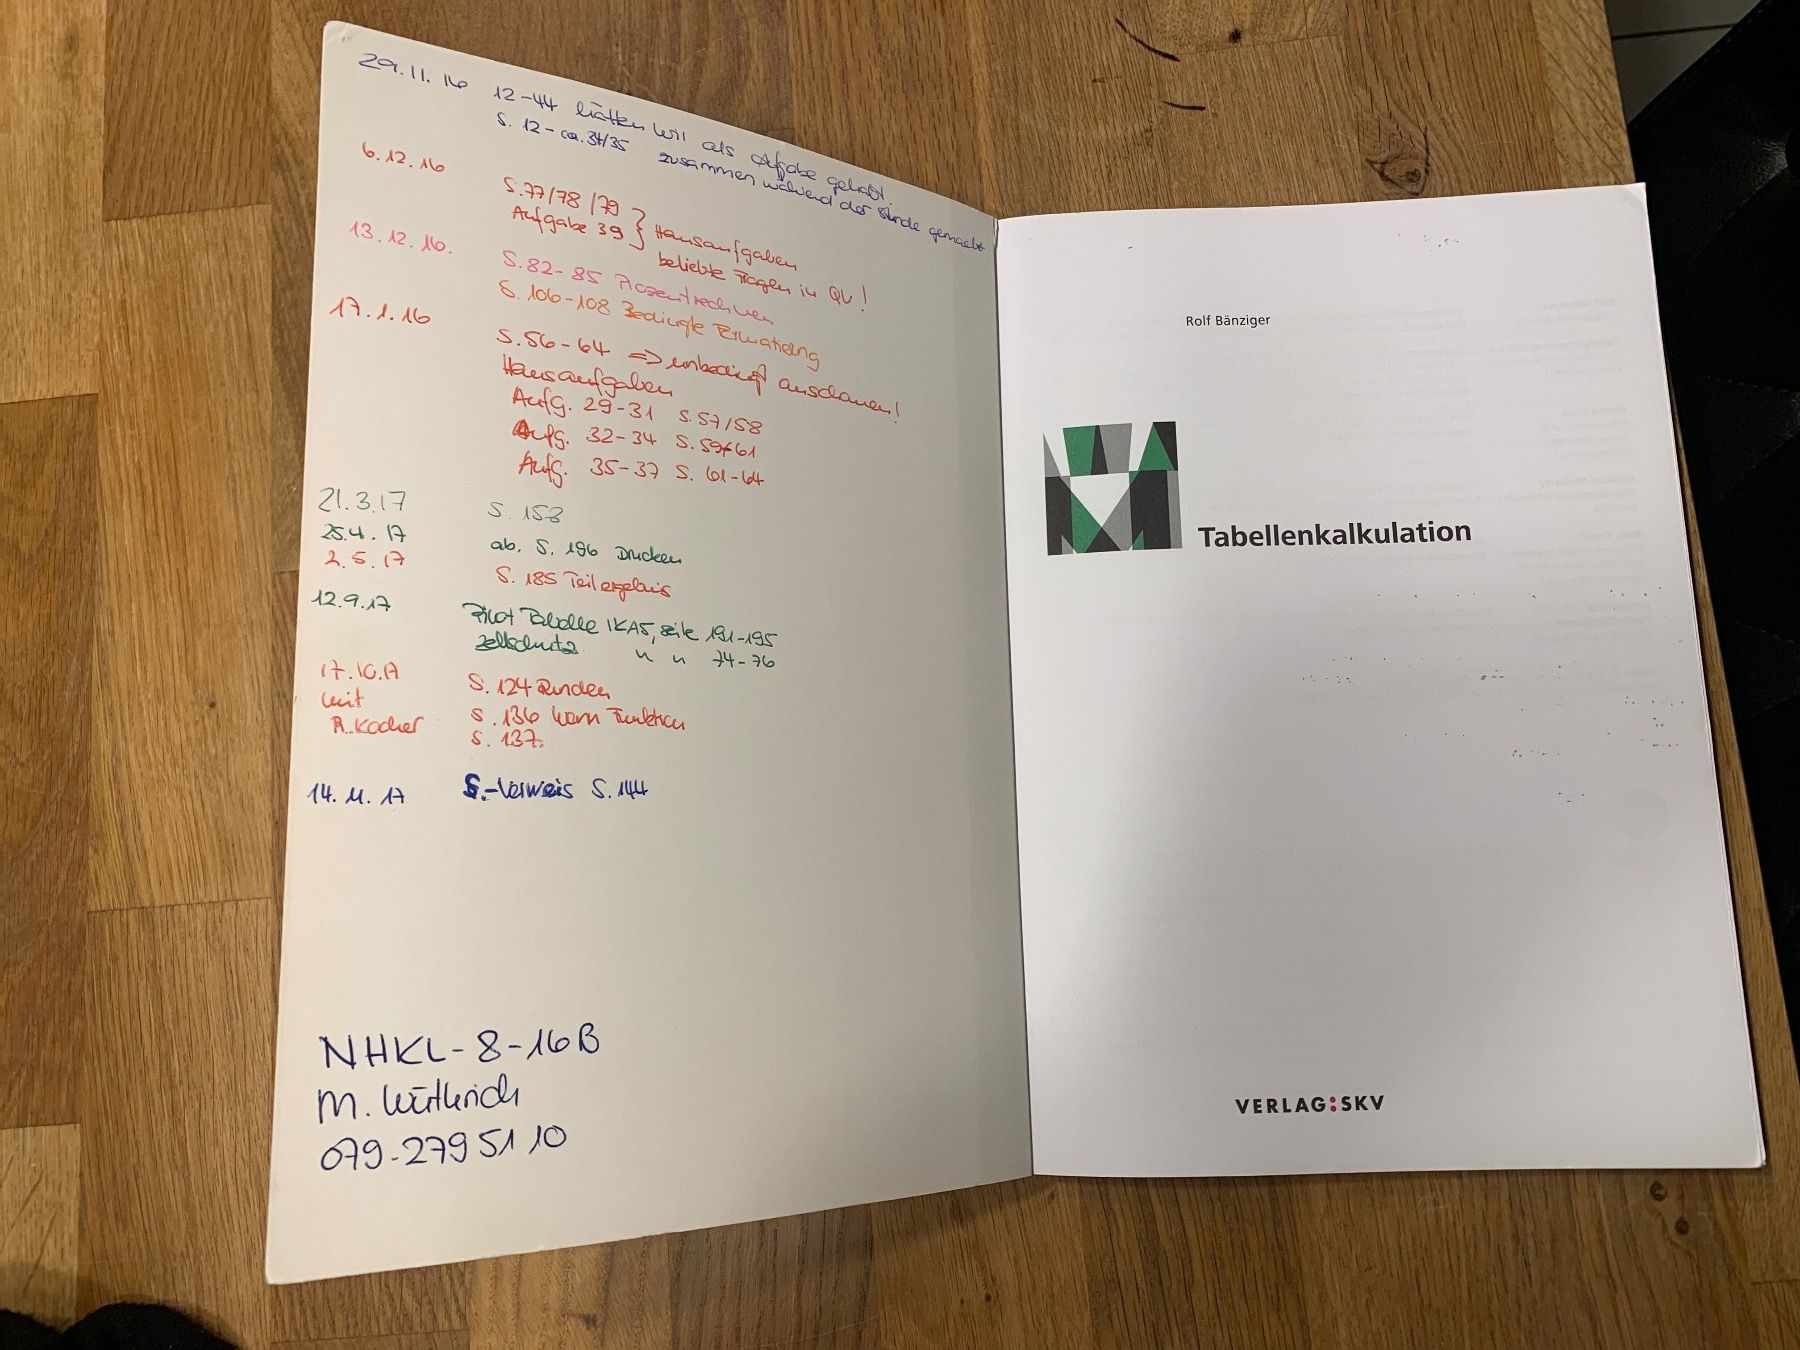 29.11.16 12-44 hätten wir als Aufgabe gehabt.
S. 12 - ca. 34/35 zusammen während der Stunde gemacht
6.12.16 S.77/78/79 } Hausaufgaben
Aufgabe 39 beliebte Fragen in QV!
13.12.16. S.82-85 Prozentrechnen
S. 106-108 Bedingte
17.1.16 S.56-64 => unbedingt anschauen!
Hausaufgaben
Aufg. 29-31 S.57/58
Aufg. 32-34 S.59+61
Aufg. 35-37 S. 61-64
21.3.17 S. 153
25.4.17 ab. S. 196 Drucken
2.5.17 S. 185 Teilergebnis
12.9.17 Pivot Tabelle IKA5, seite 191-195
Zellschutz " " 74-76
17.10.17 S. 124 Runden
mit S. 136 wenn Funktion
R. Kocher S. 137.
14.11.17 S.-Verweis S.144
NHKL-8-16B
M. Wüthrich
079-279 51 10
Rolf Bänziger
Tabellenkalkulation
VERLAG:SKV